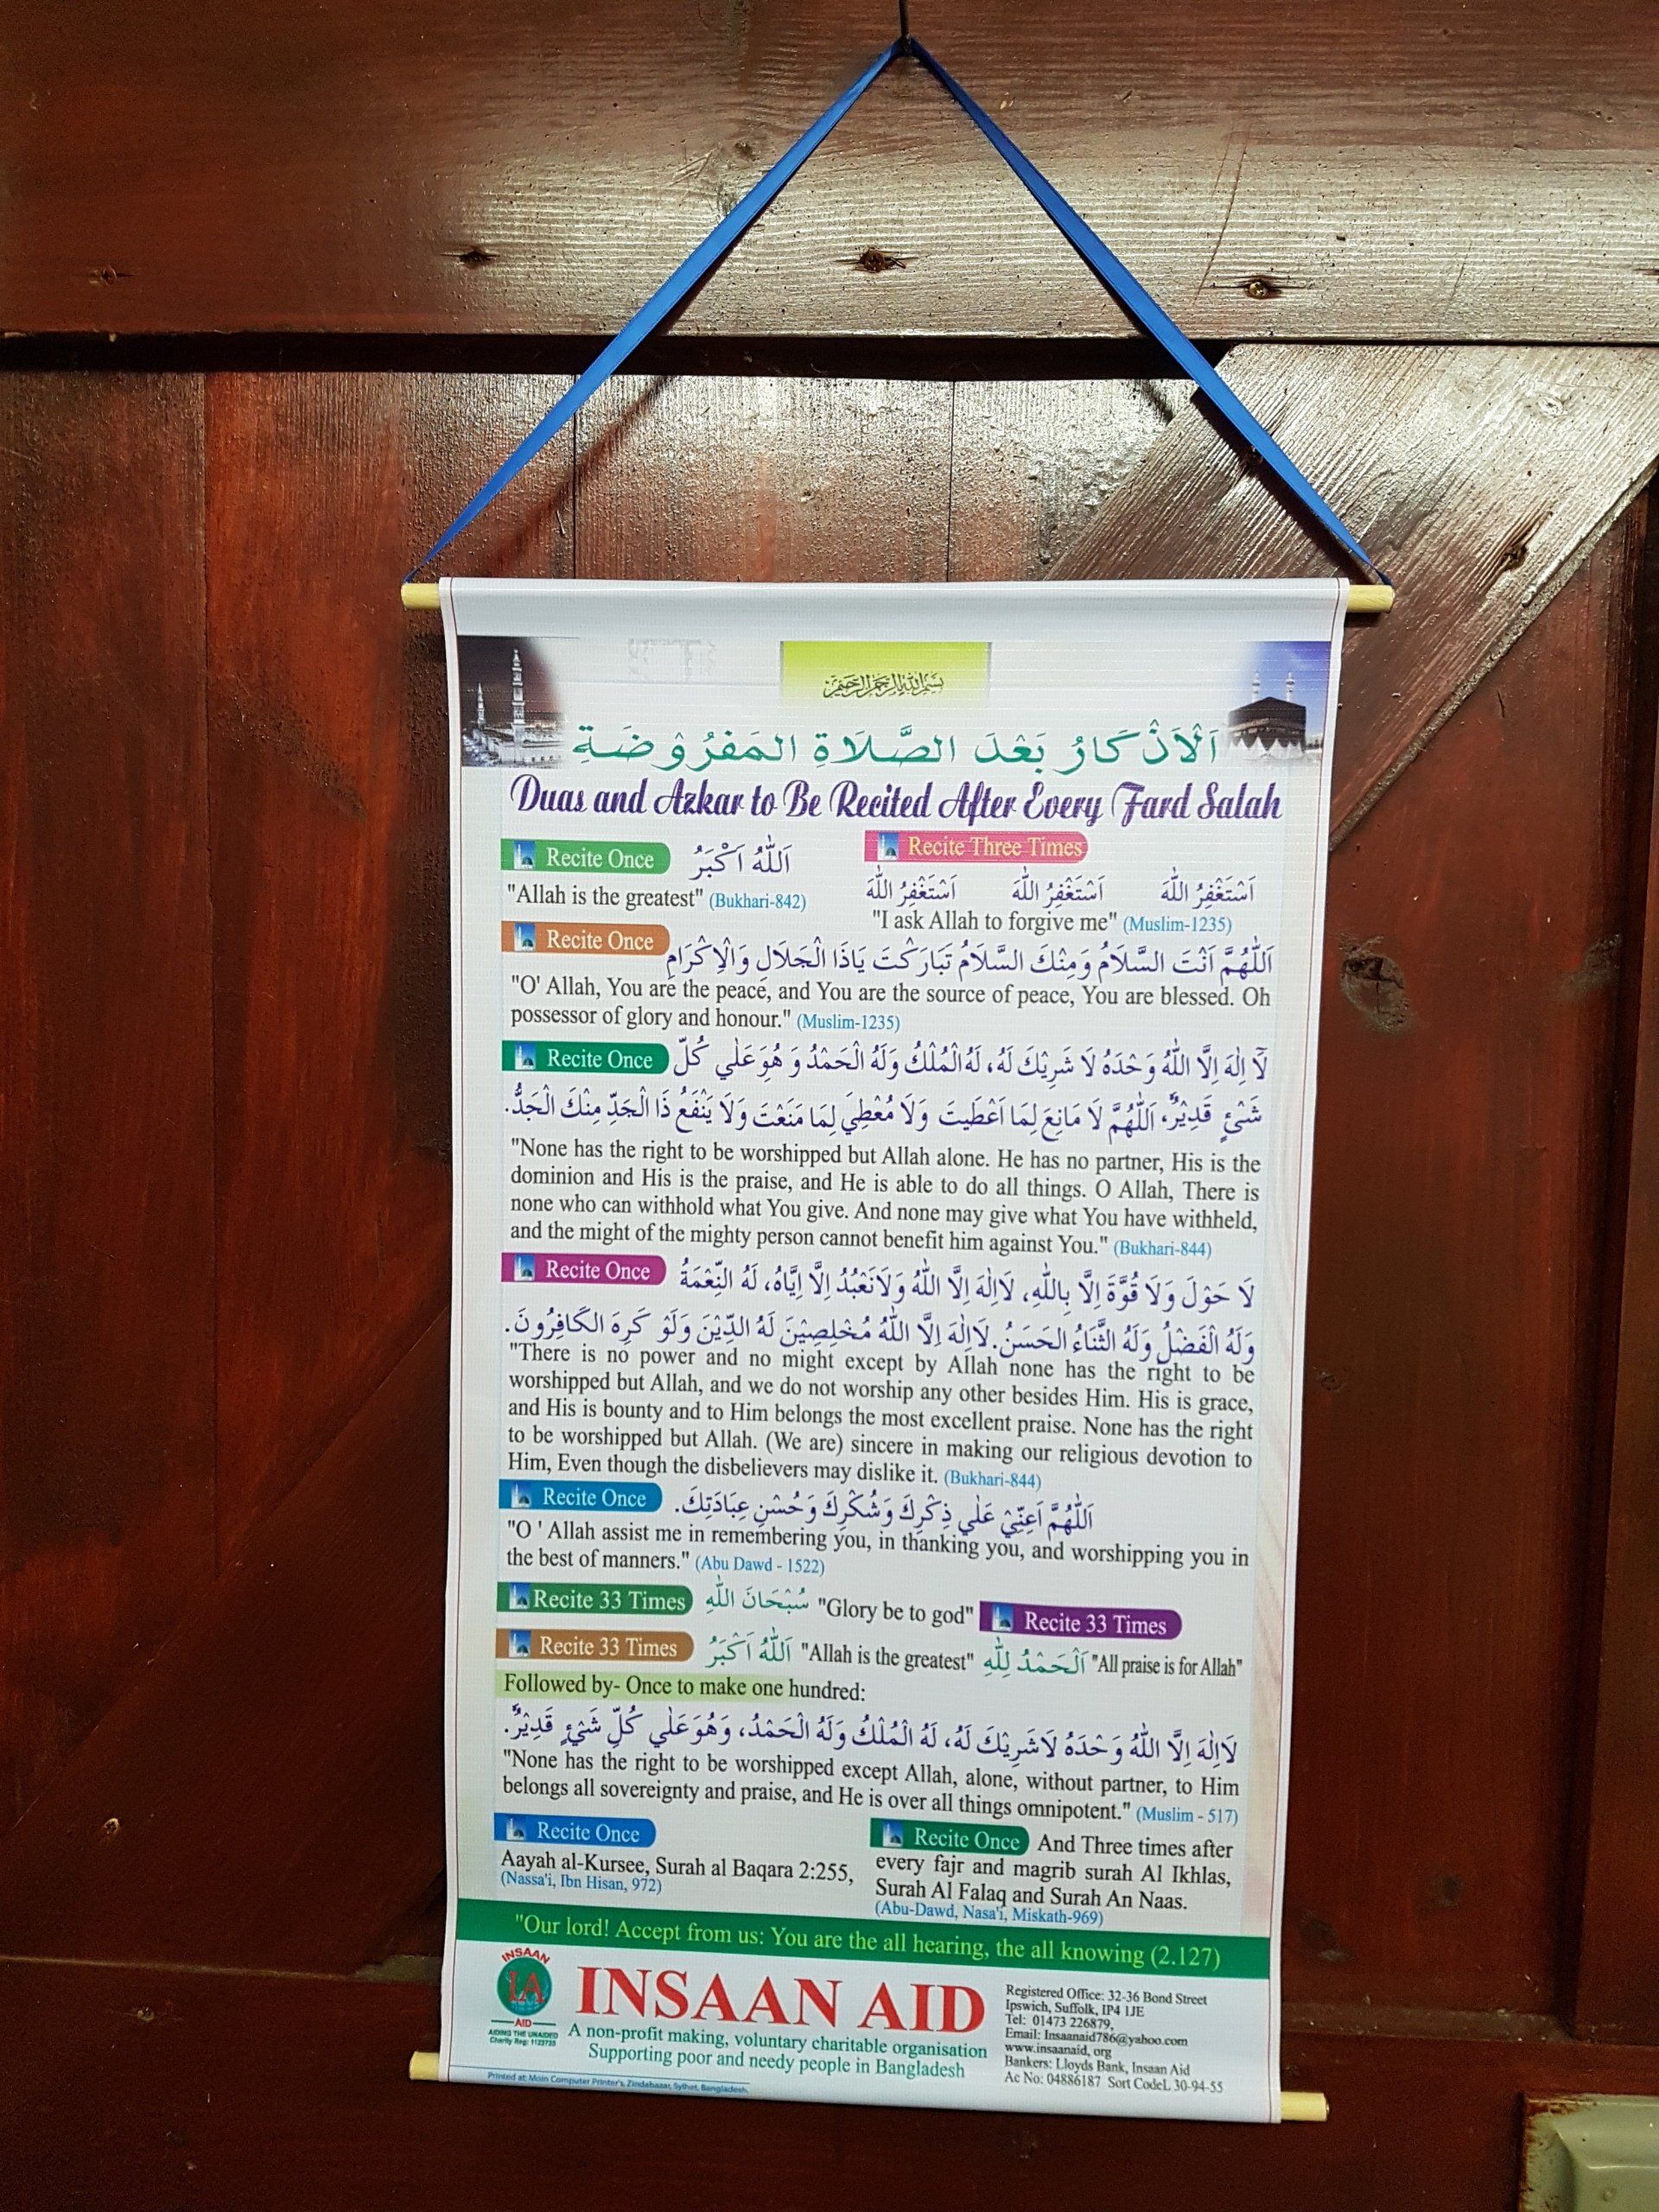 بسم الله الرحمن الرحيم
اَلْاَذْكَارُ بَعْدَ الصَّلَاةِ المَفرُوْضَةِ
Duas and Azkar to Be Recited After Every Fard Salah
Recite Once اَللّٰهُ اَكْبَرُ
"Allah is the greatest" (Bukhari-842)
Recite Three Times
اَسْتَغْفِرُ اللّٰهَ اَسْتَغْفِرُ اللّٰهَ اَسْتَغْفِرُ اللّٰهَ
"I ask Allah to forgive me" (Muslim-1235)
Recite Once اَللّٰهُمَّ اَنْتَ السَّلَامُ وَمِنْكَ السَّلَامُ تَبَارَكْتَ يَاذَا الْجَلَالِ وَالْاِكْرَامِ
"O' Allah, You are the peace, and You are the source of peace, You are blessed. Oh
possessor of glory and honour." (Muslim-1235)
Recite Once لَآ اِلٰهَ اِلَّا اللّٰهُ وَحْدَهُ لَا شَرِيْكَ لَهُ، لَهُ الْمُلْكُ وَلَهُ الْحَمْدُ وَ هُوَ عَلٰي كُلِّ
شَيْئٍ قَدِيْرٌ، اَللّٰهُمَّ لَا مَانِعَ لِمَا اَعْطَيتَ وَلَا مُعْطِيَ لِمَا مَنَعْتَ وَلَا يَنْفَعُ ذَا الْجَدِّ مِنْكَ الْجَدُّ.
"None has the right to be worshipped but Allah alone. He has no partner, His is the
dominion and His is the praise, and He is able to do all things. O Allah, There is
none who can withhold what You give. And none may give what You have withheld,
and the might of the mighty person cannot benefit him against You." (Bukhari-844)
Recite Once لَا حَوْلَ وَلَا قُوَّةَ اِلَّا بِاللّٰهِ، لَااِلٰهَ اِلَّا اللّٰهُ وَلَانَعْبُدُ اِلَّا اِيَّاهُ، لَهُ النِّعْمَةُ
وَلَهُ الْفَضْلُ وَلَهُ الثَّنَاءُ الحَسَنُ. لَااِلٰهَ اِلَّا اللّٰهُ مُخْلِصِيْنَ لَهُ الدِّيْنَ وَلَوْ كَرِهَ الكَافِرُونَ.
"There is no power and no might except by Allah none has the right to be
worshipped but Allah, and we do not worship any other besides Him. His is grace,
and His is bounty and to Him belongs the most excellent praise. None has the right
to be worshipped but Allah. (We are) sincere in making our religious devotion to
Him, Even though the disbelievers may dislike it. (Bukhari-844)
Recite Once اَللّٰهُمَّ اَعِنِّيْ عَلٰي ذِكْرِكَ وَشُكْرِكَ وَحُسْنِ عِبَادَتِكَ.
"O ' Allah assist me in remembering you, in thanking you, and worshipping you in
the best of manners." (Abu Dawd - 1522)
Recite 33 Times سُبْحَانَ اللّٰهِ "Glory be to god" Recite 33 Times
Recite 33 Times اَللّٰهُ اَكْبَرُ "Allah is the greatest" اَلْحَمْدُ لِلّٰهِ "All praise is for Allah"
Followed by- Once to make one hundred:
لَااِلٰهَ اِلَّا اللّٰهُ وَحْدَهُ لَاشَرِيْكَ لَهُ، لَهُ الْمُلْكُ وَلَهُ الْحَمْدُ، وَهُوَ عَلٰي كُلِّ شَيْئٍ قَدِيْرٌ.
"None has the right to be worshipped except Allah, alone, without partner, to Him
belongs all sovereignty and praise, and He is over all things omnipotent." (Muslim - 517)
Recite Once
Aayah al-Kursee, Surah al Baqara 2:255,
(Nassa'i, Ibn Hisan, 972)
Recite Once And Three times after
every fajr and magrib surah Al Ikhlas,
Surah Al Falaq and Surah An Naas.
(Abu-Dawd, Nasa'i, Miskath-969)
"Our lord! Accept from us: You are the all hearing, the all knowing (2.127)
INSAAN
IA
AID
AIDING THE UNAIDED
Charity Reg: 1123725
INSAAN AID
A non-profit making, voluntary charitable organisation
Supporting poor and needy people in Bangladesh
Registered Office: 32-36 Bond Street
Ipswich, Suffolk, IP4 1JE
Tel: 01473 226879,
Email: Insaanaid786@yahoo.com
www.insaanaid, org
Bankers: Lloyds Bank, Insaan Aid
Ac No: 04886187 Sort CodeL 30-94-55
Printed at: Moin Computer Printer's, Zindabazar, Sylhet, Bangladesh,